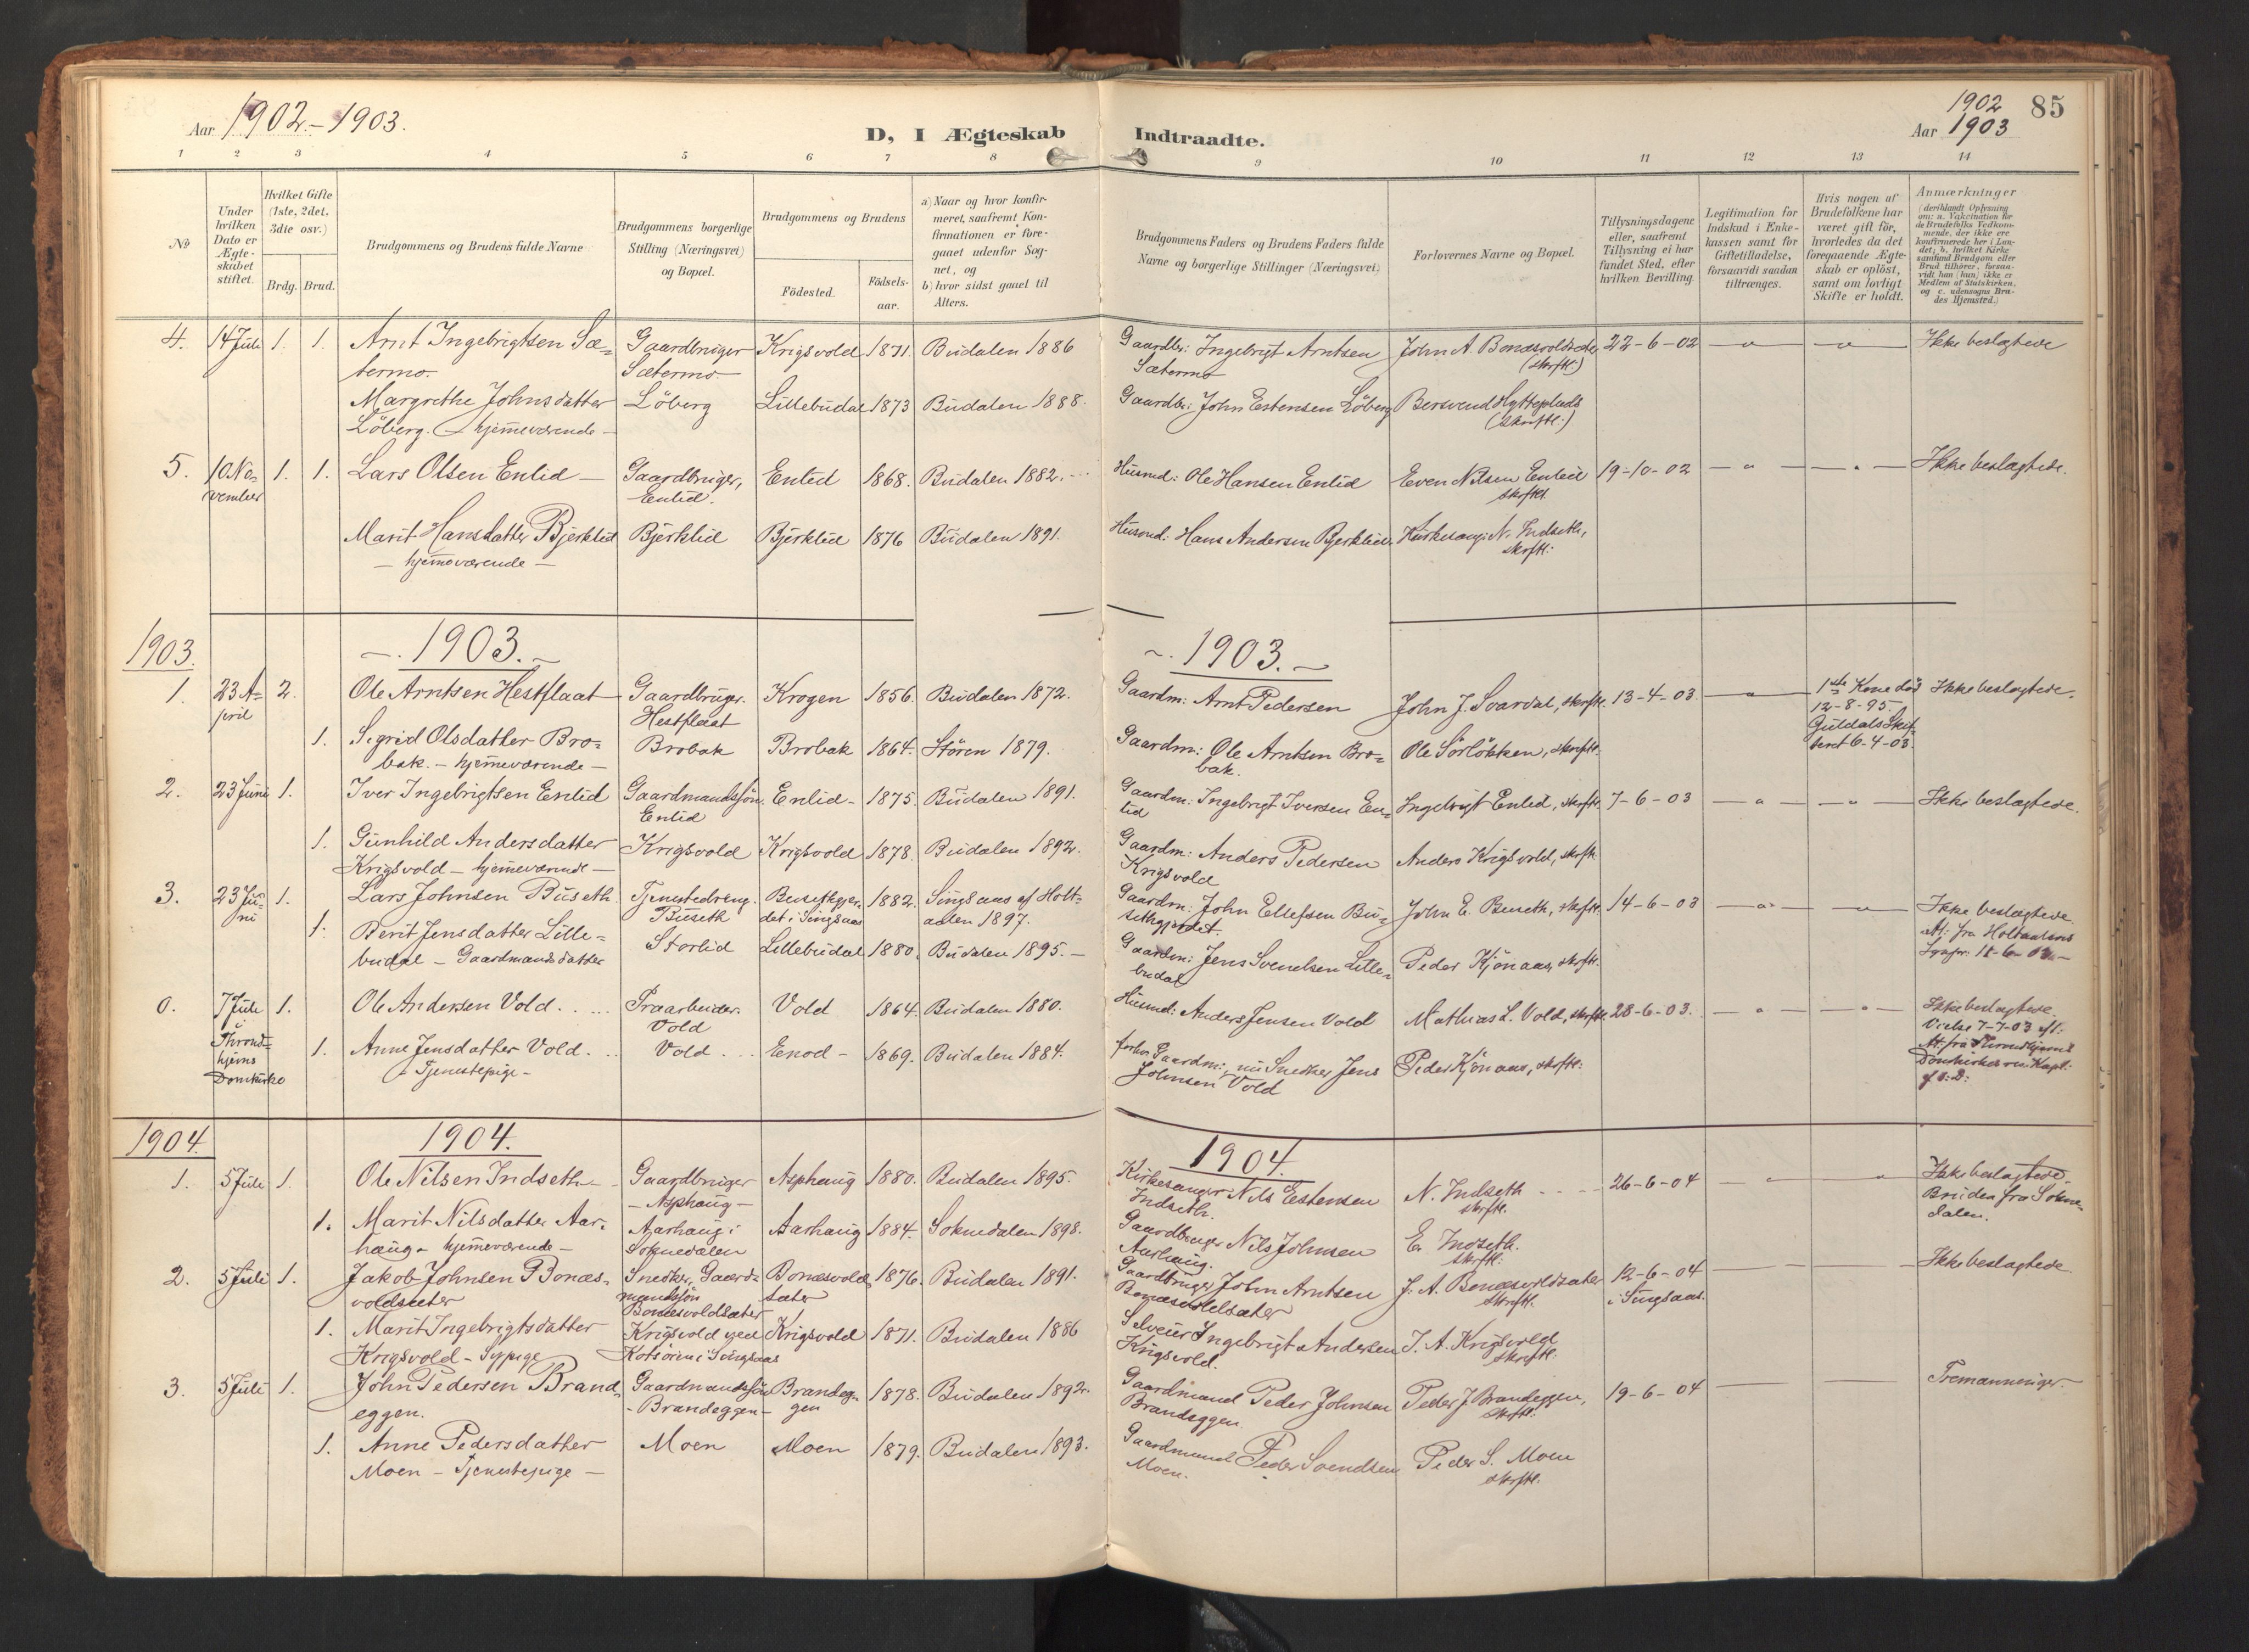 Aar 1902.-1903.
D, I Ægteskab
Indtraadte.
1902
Aar 1903
85
1 2 3 4 5 6 7 8
9 10 11 12 13 14
No
Under hvilken Dato er Ægte-skabet stiftet.
Hvilket Gifte (1ste, 2det, 3die osv.)
Brdg. Brud.
Brudgommens og Brudens fulde Navne
Brudgommens borgerlige Stilling (Næringsvei) og Bopæl.
Brudgommens og Brudens
Födested.
Födsels-aar.
a) Naar og hvor konfir-
meret, saafremt Kon-
firmationen er fore-
gaaet udenfor Sog-
net, og
b) hvor sidst gaaet til
Alters.
Brudgommens Faders og Brudens Faders fulde
Navne og borgerlige Stillinger (Næringsvei)
Forlovernes Navne og Bopæl.
Tillysningsdagene
eller, saafremt
Tillysning ei har
fundet Sted, efter
hvilken Bevilling.
Legitimation for
Indskud i Enke-
kassen samt for
Giftetilladelse,
forsaavidt saadan
tiltrænges.
Hvis nogen af
Brudefolkene har
været gift før,
hvorledes da det
foregaaende Ægte-
skab er oplöst,
samt om lovligt
Skifte er holdt.
Anmærkninger
(deriblandt Oplysning
om: a. Vakcination for
de Brudefolks Vedkom-
mende, der ikke ere
konfirmerede her i Lan-
det; b. hvilket Kirke-
samfund Brudgom eller
Brud tilhörer, forsaa-
vidt han (hun) ikke er
Medlem af Statskirken,
og c. udensogns Bru-
des Hjemsted.)
4. 14 Juli 1. 1. Arnt Ingebrigtsen Sæ= Gaardbruger Krigsvold 1871. Budalen 1886 Gaardbr: Ingebrigt Arntsen John A. Bonæsvoldsæter 22-6-02 Ikke beslægtede
termo. Sætermo Sætermo (skriftl.)
Margrethe Johnsdatter Löberg Lillebudal 1873 Budalen 1888. Gaardbr: John Estensen Löberg Bersvend Hytteplads
Löberg. - hjemeværende - (skriftl.)
5. 10 No= 1. 1. Lars Olsen Enlid - Gaardbruger, Enlid 1868. Budalen 1882. Husmd: Ole Hansen Enlid Even Nilsen Enlid 19-10-02 Ikke beslægtede.
vember Enlid. skriftl.
Marit Hansdatter Bjerklid Bjerklid Bjerklid 1876 Budalen 1891. Husmd: Hans Andersen Bjerklid Kirkesang: N. Indseth,
- hjemeværende - skrftl:
1903. 1903. 1903.
1. 23 A= 2. Ole Arntsen Hestflaat Gaardbruger. Krogen 1856. Budalen 1872. Gaardm: Arnt Pedersen John J. Svardal, skrftl. 13-4-03. 1ste Kone död Ikke beslægtede.
pril Hestflaat 12-8-95.
1. Sigrid Olsdatter Bro= Brobak Brobak 1864. Stören 1879. Gaardm: Ole Arntsen Bro= Ole Sörlökken, skrftl. Guldals Skif=
bak. - hjemeværende - bak. teret 6-4-03.
2. 23 Juni 1. Iver Ingebrigtsen Enlid Gaardmandssön Enlid - 1875. Budalen 1891. Gaardm: Ingebrigt Iversen En= Ingebrigt Enlid, skrftl. 7-6-03 Ikke beslægtede.
Enlid lid
1. Gunhild Andersdatter Krigsvold Krigsvold 1878. Budalen 1892. Gaardm: Anders Pedersen Anders Krigsvold, skrftl.
Krigsvold - hjemeværende - Krigsvold
3. 23 Ju= 1. Lars Johnsen Buseth. Tjenestedreng. Busethgjer= 1882. Singsaas af Holt= Gaardm: John Ellefsen Bu= John E. Buseth, skrftl. 14-6-03 Ikke beslægtede
ni Buseth det i Singsaas aalen 1897. sethgjerdet.
1. Berit Jensdatter Lille= Storlid Lillebudal 1880. Budalen 1895. - Gaardm: Jens Svendsen Lille= Peder Kjönaas, skrftl. Att: fra Holtaalens
budal - Gaardmandsdatter budal
0. 7 Juli 1. Ole Andersen Vold. Vold 1864. Budalen 1880. Husmd: Anders Jensen Vold Mathias L. Vold, skrftl. 28-6-03. Ikke beslægtede.
i Vold Vielse 7-7-03 ifl:
Thrond= 1. Anne Jensdatter Vold. Vold Enod - 1869. Budalen 1884. forhv. Gaardm:, nu Snedker Jens Peder Kjönaas, skrftl: Att. fra Throndhjems
hjems - Tjenestepige - Johnsen Vold Domkirkes
Domkirke
1904. 1904. 1904.
1. 5 Juli 1. Ole Nilsen Indseth - Gaardbruger Asphaug 1880. Budalen 1895. Kirkesanger Nils Estensen N. Indseth 26-6-04 Ikke beslægtede.
- Asphaug - Indseth. skrftl. Bruden fra Sokne=
1. Marit Nilsdatter Aar= Aarhaug i Aarhaug 1884. Soknedalen 1898. Gaardbruger Nils Johnsen E. Indseth. dalen.
haug - hjemeværende - Soknedalen Aarhaug. skrftl:
2. 5 Juli 1. Jakob Johnsen Bonæs= Snedker, Gaard= Bonæsvold 1876. Budalen 1891. Gaardbruger John Arntsen J. A. Bonæsvoldsæter 12-6-04 Ikke beslægtede
voldsæter mandssön sæter Bonæsvoldsæter skrftl. i Singsaas.
Bonæsvoldsæter
1. Marit Ingebrigtsdatter Krigsvold ved Krigsvold 1871. Budalen 1886 Selveier Ingebrigt Andersen I. A. Krigsvold
Krigsvold - Sypige Kotsöien i Singsaas Krigsvold. skrftl:
3. 5 Juli 1. John Pedersen Brand= Gaardmandssön Brandeg= 1878. Budalen 1892. Gaardmand Peder Johnsen Peder J. Brandeggen, 19-6-04 Tremænninger.
eggen. - Brandeggen - gen Brandeggen. skrftl:
1. Anne Pedersdatter Moen Moen 1879. Budalen 1893. Gaardmand Peder Svendsen Peder S. Moen
Moen - Tjenestepige - Moen. skrftl.